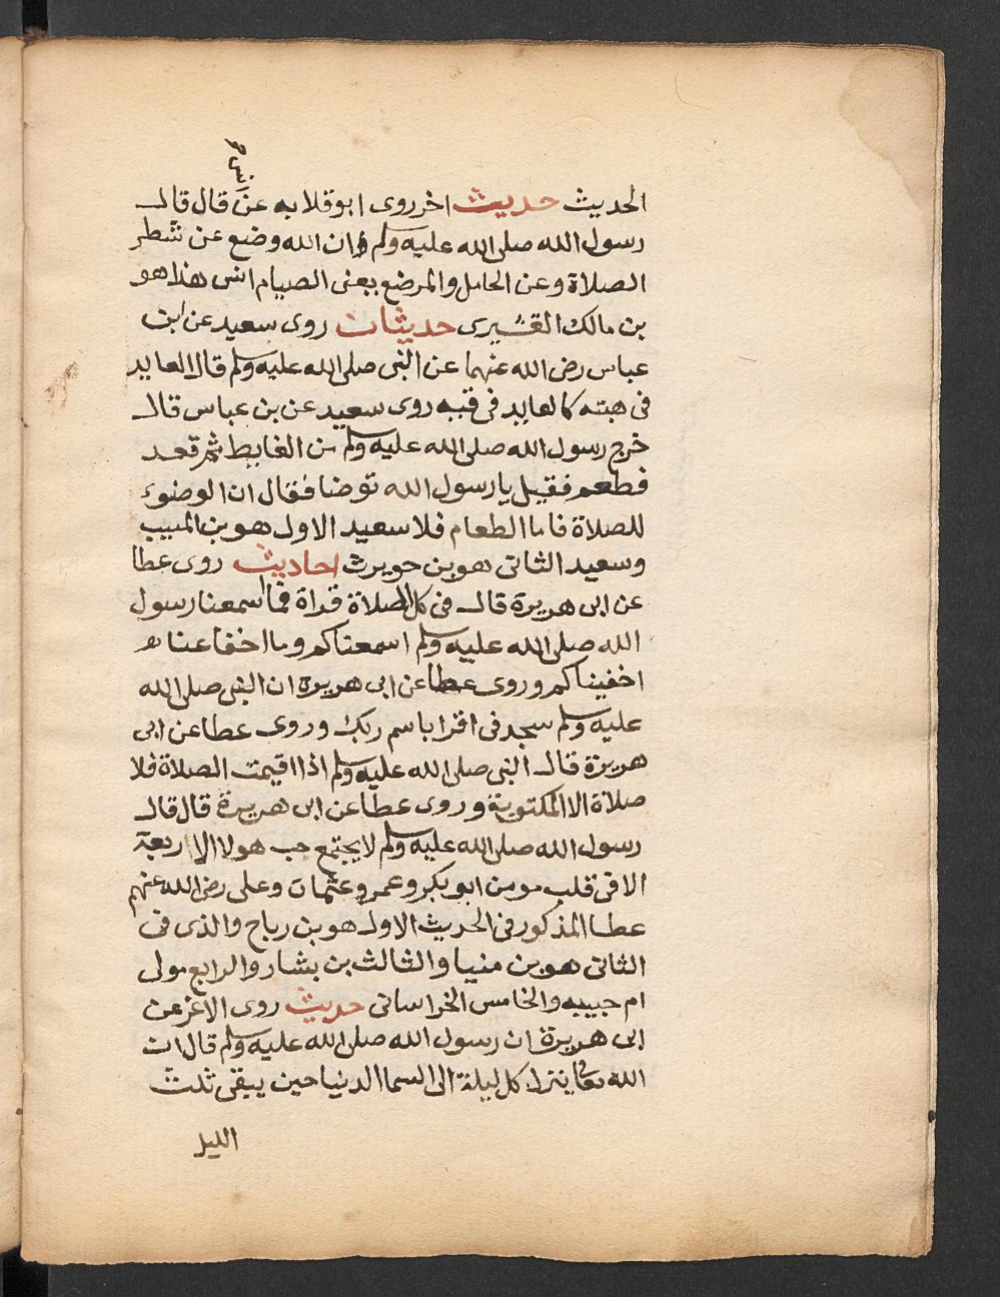 انس صح
الحديث حديث اخر روى ابو قلابه عن قال قال
رسول الله صلى الله عليه وسلم ان الله وضع عن شطر
الصلاة وعن الحامل والمرضع يعنى الصيام انس هذا هو
بن مالك القشيرى حديثان روى سعيد عن ابن
عباس رضى الله عنهما عن النبى صلى الله عليه وسلم قال العايد
فى هبته كالعايد فى قيه روى سعيد عن بن عباس قال
خرج رسول الله صلى الله عليه وسلم من الغايط ثم قعد
فطعم فقيل يا رسول الله توضا فقال ان الوضوء
للصلاة فاما الطعام فلا سعيد الاول هو بن المسيب
وسعيد الثانى هو بن حويرث احاديث روى عطا
عن ابى هريرة قال فى كل الصلاة قراة فما اسمعنا رسول
الله صلى الله عليه وسلم اسمعناكم وما اخفا عنا
اخفيناكم وروى عطا عن ابى هريرة ان النبى صلى الله
عليه وسلم سجد فى اقرا باسم ربك وروى عطا عن ابى
هريرة قال النبى صلى الله عليه وسلم اذا اقيمت الصلاة فلا
صلاة الا المكتوبة وروى عطا عن ابى هريرة قال قال
رسول الله صلى الله عليه وسلم لا يجتمع حب هولا الاربعة
الا فى قلب مومن ابو بكر وعمر وعثمان وعلى رضى الله عنهم
عطا المذكور فى الحديث الاول هو بن رباح والذى فى
الثانى هو بن منيا والثالث بن بشار والرابع مولى
ام حبيبه والخامس الخراسانى حديث روى الاغر عن
ابى هريرة ان رسول الله صلى الله عليه وسلم قال ان
الله تعالى ينزل كل ليلة الى السما الدنيا حين يبقى ثلث
الليل